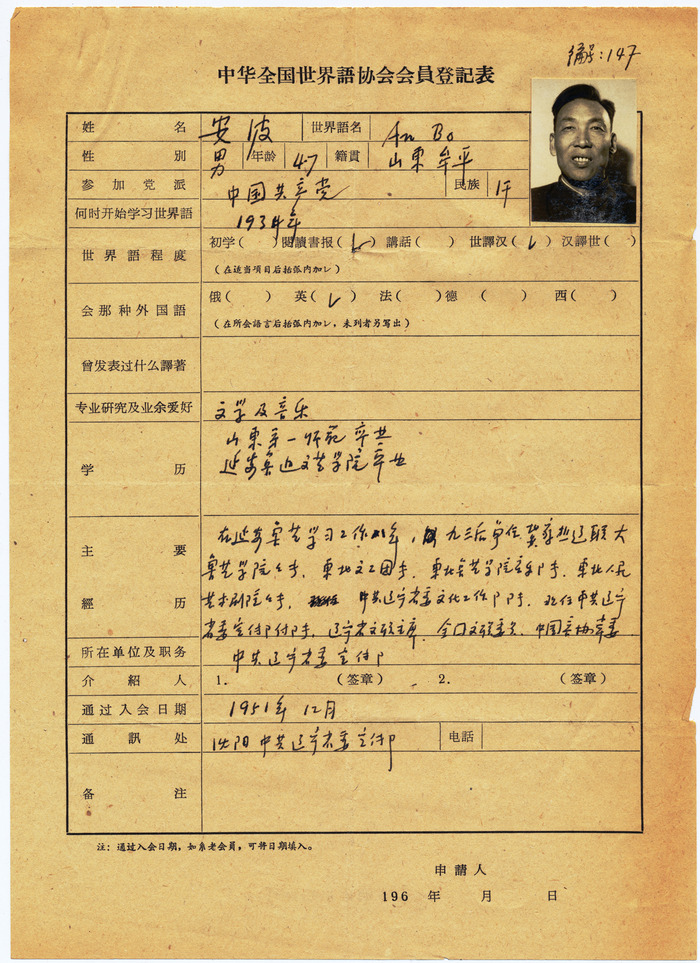 编号:147
中华全国世界語协会会員登記表
姓名 安波 世界語名 An Bo
性別 男 年龄 47 籍貫 山東牟平
参加党派 中国共产党 民族 汉
何时开始学习世界語 1934年
世界語程度 初学( ) 閱讀書报(✓) 講話( ) 世譯汉(✓) 汉譯世( )
(在适当項目后括弧内加✓)
会那种外国語 俄( ) 英(✓) 法( ) 德( ) 西( )
(在所会語言后括弧内加✓,未列者另写出)
曾发表过什么譯著
专业研究及业余爱好 文学及音乐
学历 山東第一师范卒业
延安鲁迅文艺学院卒业
主要經历 在延安鲁艺学习工作
鲁艺学院 东北文工团 东北鲁艺学院音乐 东北人民
艺术剧院 中共辽宁省委文化工作 现任中共辽宁
省委宣付 辽宁省文联主席 全口文联委员 中国音协
所在单位及职务 中共辽宁省委宣付
介紹人 1. (签章) 2. (签章)
通过入会日期 1951年12月
通訊处 沈阳中共辽宁省委宣付 电話
备注
注:通过入会日期,如系老会員,可将日期填入。
申請人
196 年 月 日